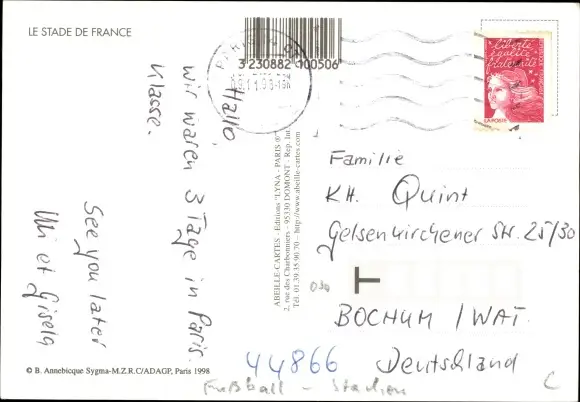 LE STADE DE FRANCE
3 230882 100506
PARIS
liberté
égalité
fraternité
LA POSTE
Hallo,
wir waren 3 Tage in Paris.
Klasse.
See you later
Uli et Gisela
ABEILLE-CARTES - Editions "LYNA - PARIS ®"
2, rue des Charbonniers - 95330 DOMONT - Rep. Int.
Tél. 01.39.35.90.70 - http://www.abeille-cartes.com
Familie
KH. Quint
Gelsenkirchener Str. 25/30
T
BOCHUM / WAT.
44866 Deutschland
Fußball - Stadion
© B. Annebicque Sygma-M.Z.R.C/ADAGP, Paris 1998